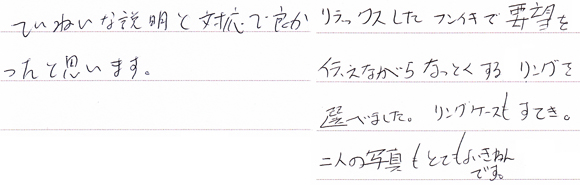 ていねいな説明と対応で良か
ったと思います。
リラックスした フンイキで要望を
伝えながら なっとくする リングを
選べました。 リングケースも すてき。
二人の写真もとてもよいきねん
です。